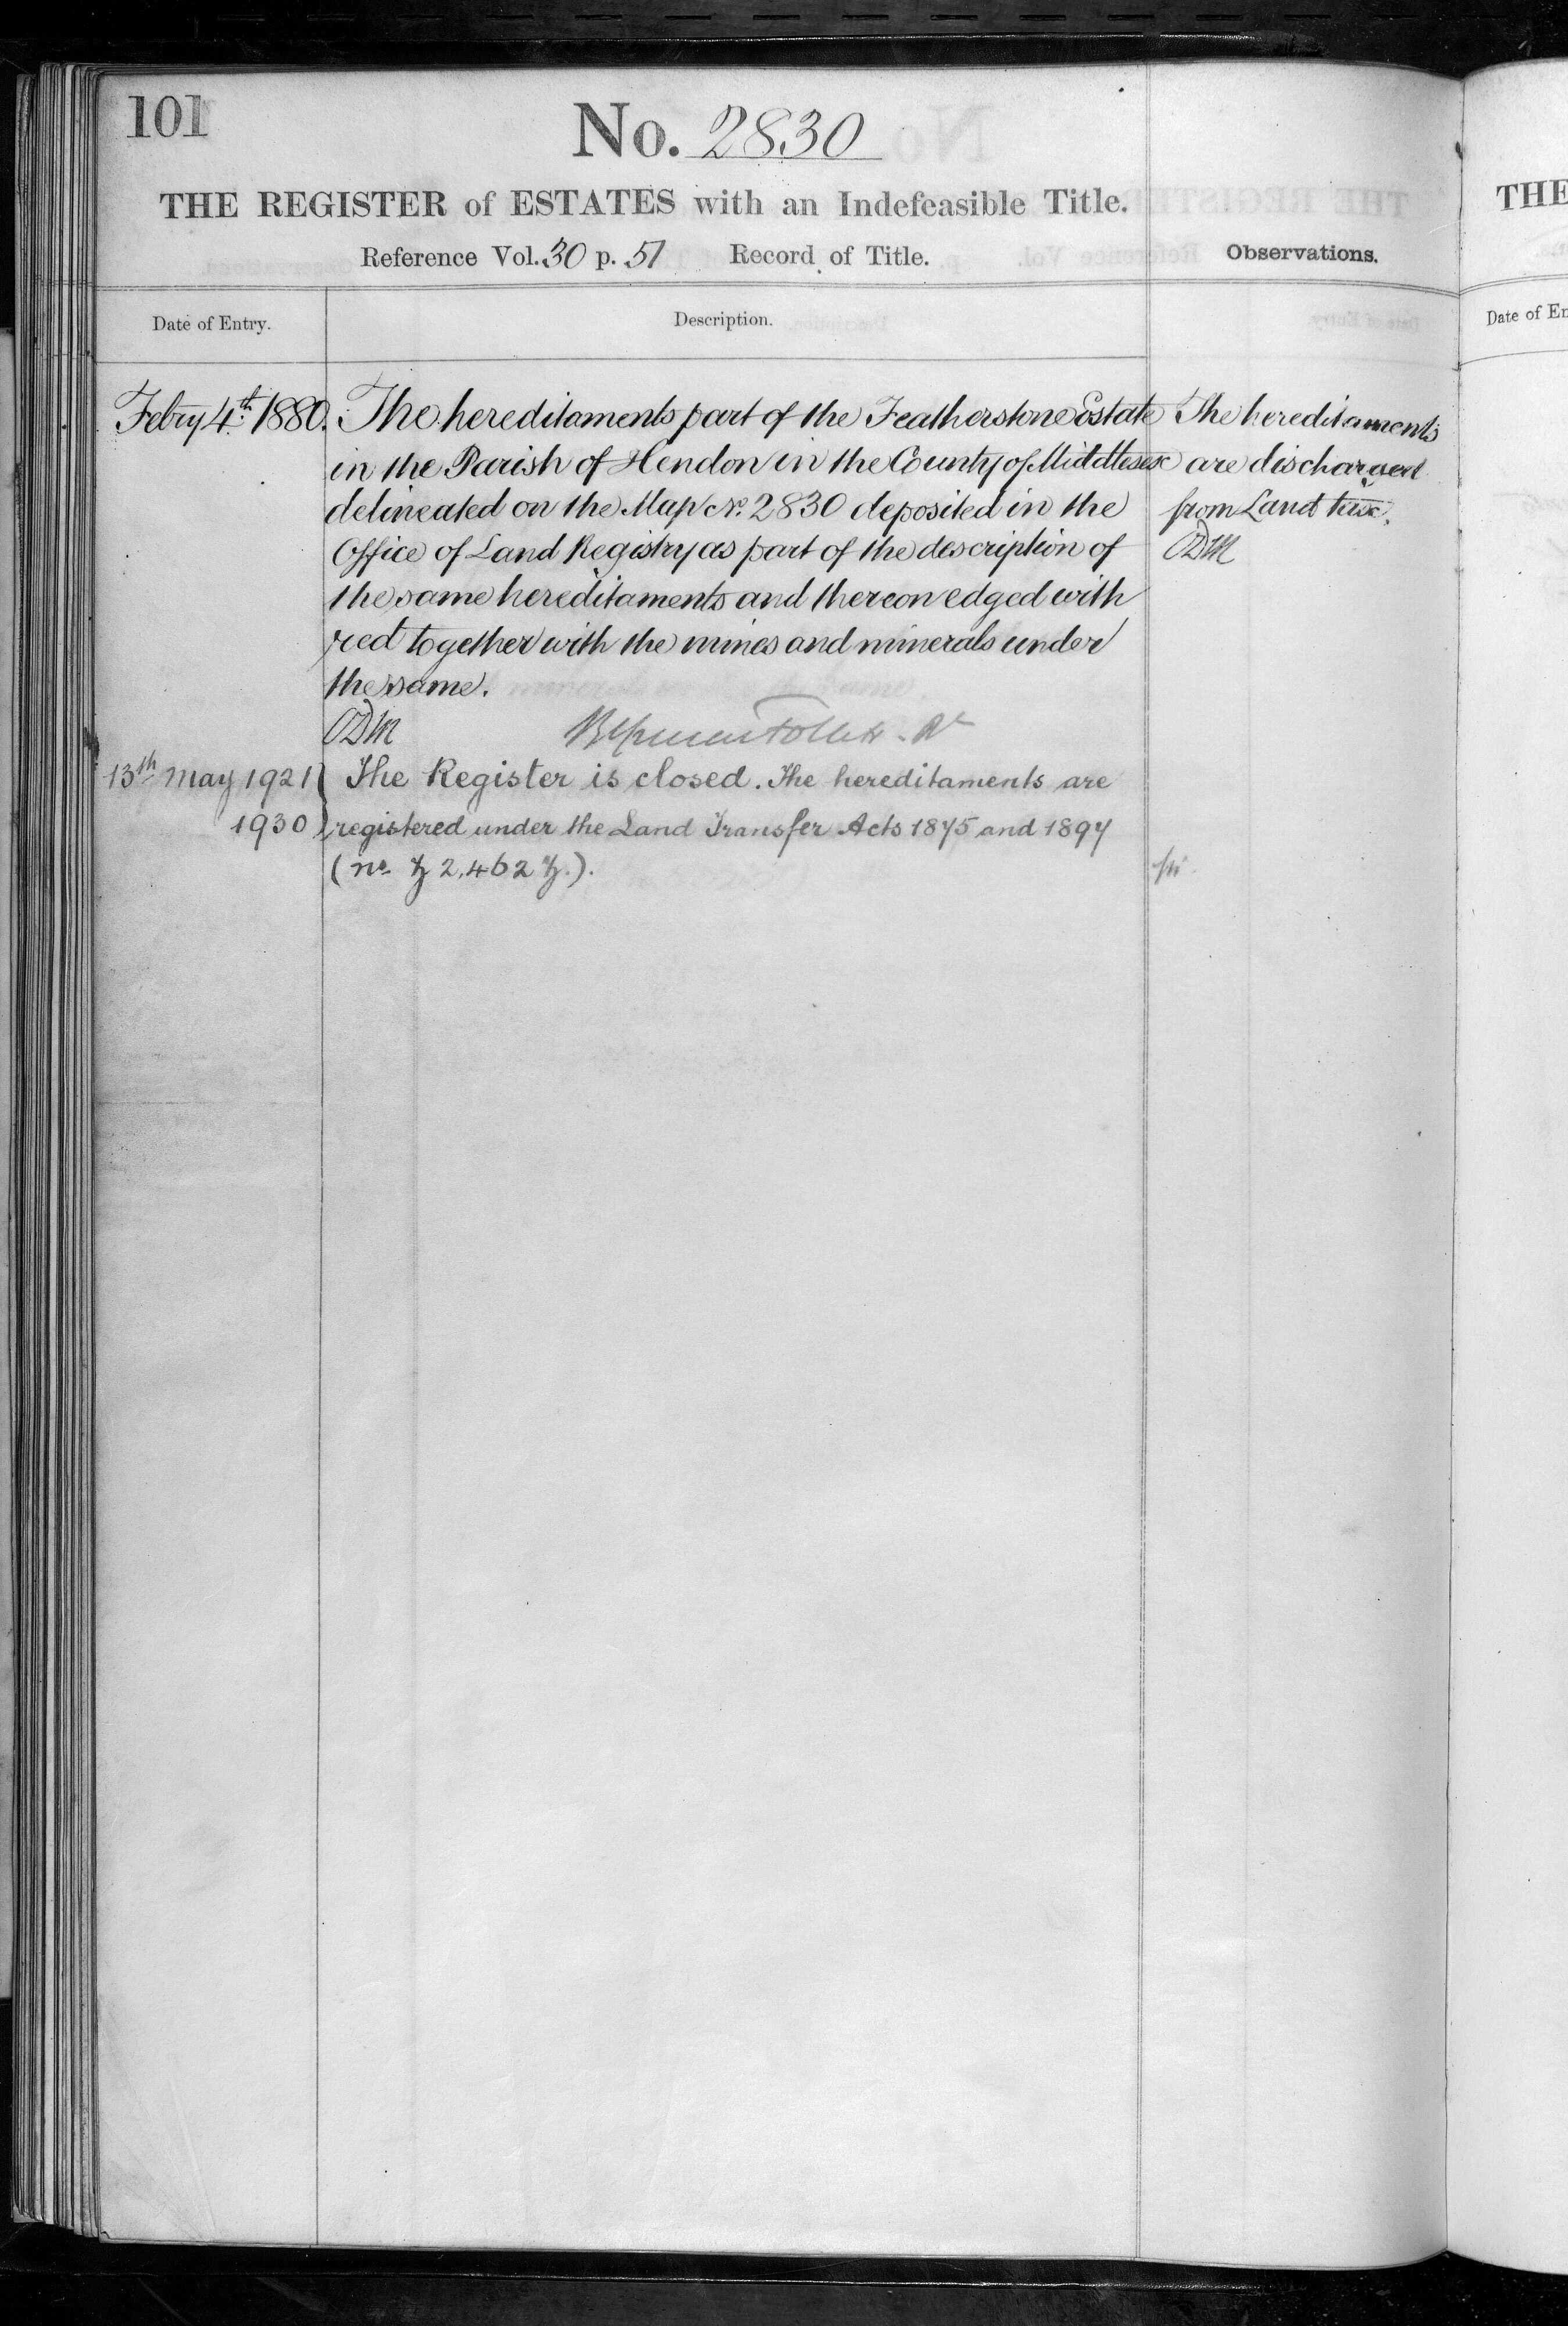 101
No. 2830
THE REGISTER of ESTATES with an Indefeasible Title.
Reference Vol. 30 p. 51 Record of Title.
Observations.
Date of Entry.
Description.
Febry 4th 1880.
The hereditaments part of the Featherstone Estate
in the Parish of Hendon in the County of Middlesex
delineated on the Map No. 2830 deposited in the
Office of Land Registry as part of the description of
the same hereditaments and thereon edged with
red together with the mines and minerals under
the same.
The hereditaments
are discharged
from Land tax.
13th May 1921
1930
The Register is closed. The hereditaments are
registered under the Land Transfer Acts 1875 and 1897
THE
Date of En